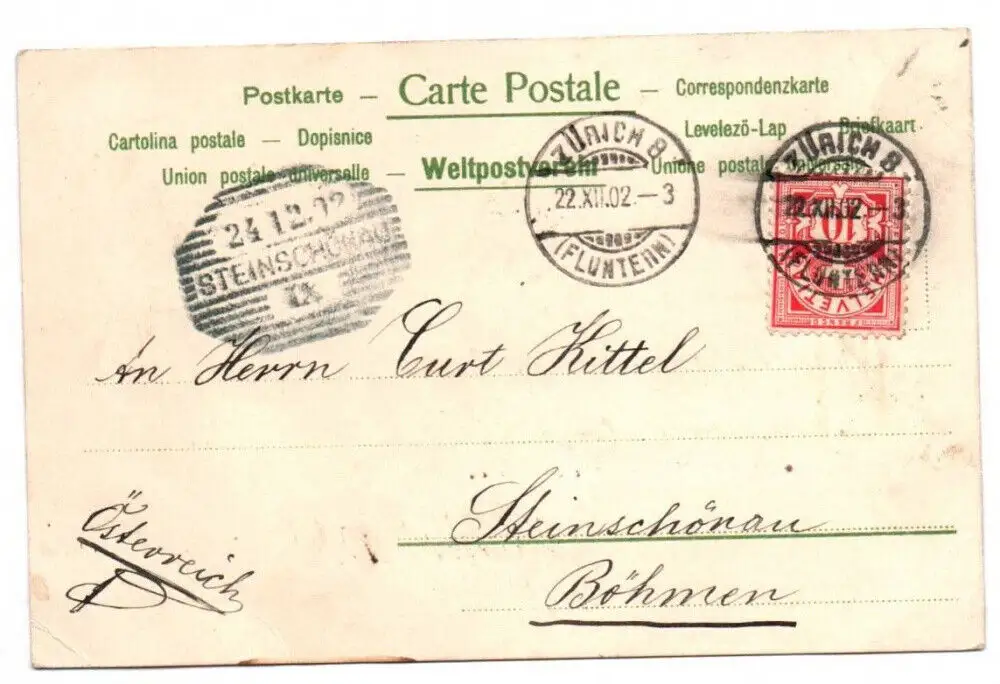 Postkarte — Carte Postale — Correspondenzkarte
Cartolina postale — Dopisnice
Levelezö-Lap — Briefkaart
Union postale universelle — Weltpostverein — Unione postale universale
ZÜRICH 8
22.XII.02.—3
(FLUNTERN)
ZÜRICH 8
22.XII.02.—3
(FLUNTERN)
10
HELVETIA
FRANCO
24.12.02
STEINSCHÖNAU
An Herrn Curt Kittel
Steinschönau
Österreich
Böhmen